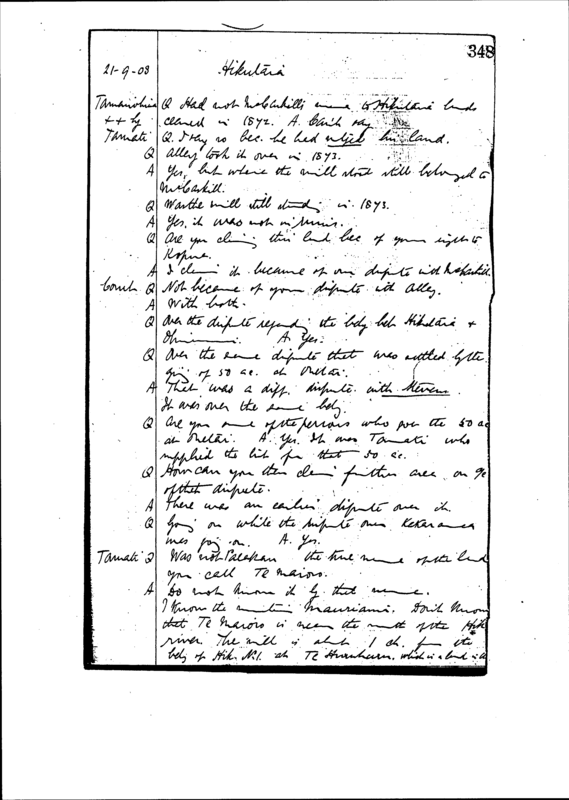 348
21-9-08 Hikutaia
Q Had not McCaskill's name to Hikutaia lands
++ by ceased in 1872. A. Can't say
Tamati Q. I say so bec. he had his land.
Q Alley took it over in 1873.
A Yes, but where the mill stood still belonged to
McCaskill.
Q Was the mill still standing in 1873.
A Yes, it was not in ruins.
Q Are you claiming this land bec of your right to
Kopua.
A I claim it because of our dispute with McCaskill
Court Q Not because of your dispute with Alley.
A With both.
Q Over the dispute regarding the bdy bet Hikutaia +
A Yes.
Q Over the same dispute that was settled by the
giving of 50 ac. at Onetai.
A That was a diff. dispute with Stevens
It was over the same bdy.
Q Are you one of the persons who got the 50 ac
at Onetai. A. Yes. It was Tamati who
supplied the list for that 50 ac.
Q How can you then claim further area on a/c
of that dispute.
A There was an earlier dispute over it.
Q Going on while the dispute over
was going on. A. Yes.
Tamati Q Was not the true name of the land
you call Te Maioro.
A Do not know it by that name.
I know the Mauriami. Don't know
that Te Maioro is near the mouth of the Hik
river. The mill is about 1 ch. from the
bdy of Hik. No. 1. at Te which is a land